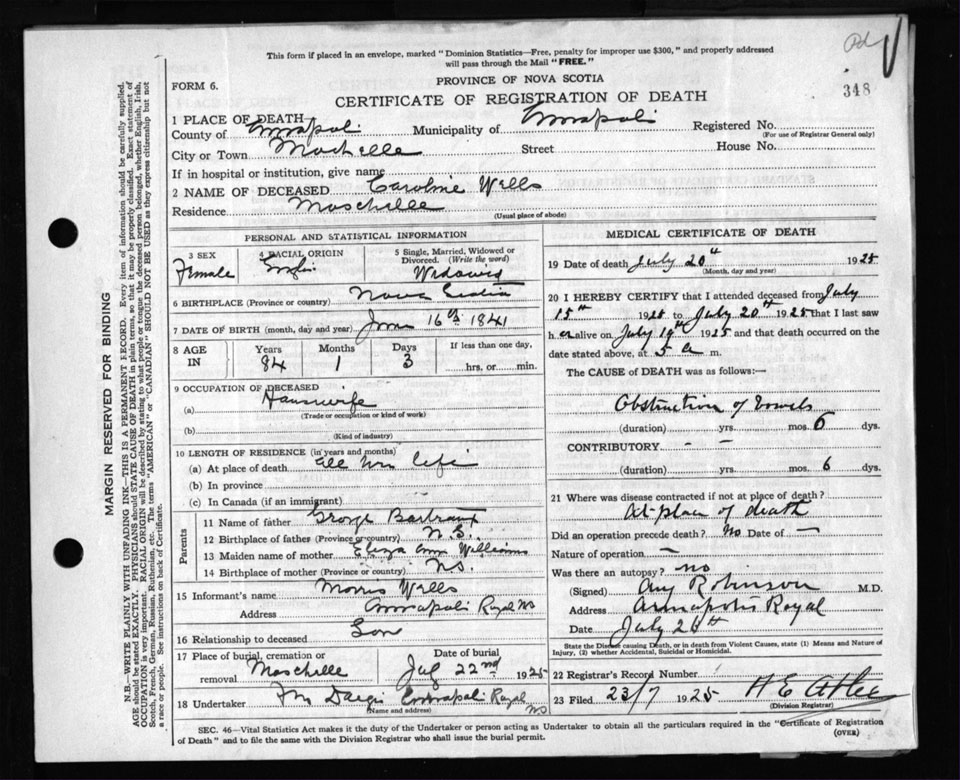 This form if placed in an envelope, marked "Dominion Statistics—Free, penalty for improper use $300," and properly addressed
will pass through the Mail "FREE."
348
FORM 6.
PROVINCE OF NOVA SCOTIA
CERTIFICATE OF REGISTRATION OF DEATH
1 PLACE OF DEATH—
County of Annapolis Municipality of Annapolis Registered No.
(For use of Registrar General only)
City or Town Moschelle Street House No.
If in hospital or institution, give name
2 NAME OF DECEASED Caroline Wells
Residence Moschelle
(Usual place of abode)
PERSONAL AND STATISTICAL INFORMATION
3 SEX 4 RACIAL ORIGIN 5 Single, Married, Widowed or Divorced. (Write the word)
Female English Widowed
6 BIRTHPLACE (Province or country) Nova Scotia
7 DATE OF BIRTH (month, day and year) June 16th 1841
8 AGE IN Years Months Days If less than one day,
84 1 3 hrs. or min.
9 OCCUPATION OF DECEASED
(a) Housewife
(Trade or occupation or kind of work)
(b)
(Kind of industry)
10 LENGTH OF RESIDENCE (in years and months)
(a) At place of death All her life
(b) In province
(c) In Canada (if an immigrant)
Parents
11 Name of father George Bartraux
12 Birthplace of father (Province or country) N.S.
13 Maiden name of mother Eliza Ann Williams
14 Birthplace of mother (Province or country) NS.
15 Informant's name Morris Wells
Address Annapolis Royal NS
16 Relationship to deceased Son
17 Place of burial, cremation or removal Date of burial
Moschelle July 22nd 1925
18 Undertaker Annapolis Royal NS
(Name and address)
MEDICAL CERTIFICATE OF DEATH
19 Date of death July 20th 1925
(Month, day and year)
20 I HEREBY CERTIFY that I attended deceased from July
15th 1925 to July 20th 1925 that I last saw
h er alive on July 19th 1925 and that death occurred on the
date stated above, at 5 a m.
The CAUSE of DEATH was as follows:—
Obstruction of bowels
(duration) yrs. mos. 6 dys.
CONTRIBUTORY — —
(duration) yrs. mos. 6 dys.
21 Where was disease contracted if not at place of death?
At place of death
Did an operation precede death? No Date of —
Nature of operation —
Was there an autopsy? no
(Signed) Robinson M.D.
Address Annapolis Royal
Date July 26th
State the Disease causing Death, or in Death from Violent Causes, state (1) Means and Nature of
Injury, (2) whether Accidental, Suicidal or Homicidal.
22 Registrar's Record Number 7
23 Filed 23/7 1925 H E Atlee
(Division Registrar)
SEC. 46—Vital Statistics Act makes it the duty of the Undertaker or person acting as Undertaker to obtain all the particulars required in the "Certificate of Registration
of Death" and to file the same with the Division Registrar who shall issue the burial permit.
(OVER)
MARGIN RESERVED FOR BINDING
N.B.—WRITE PLAINLY WITH UNFADING INK—THIS IS A PERMANENT RECORD. Every item of information should be carefully supplied.
AGE should be stated EXACTLY. PHYSICIANS should STATE CAUSE OF DEATH in plain terms, so that it may be properly classified. Exact statement of
OCCUPATION is very important. RACIAL ORIGIN will be described by stating to what people or tongue the deceased person belonged, whether English, Irish,
Scotch, French, German, Russian, Ruthenian, etc. The terms "AMERICAN" or "CANADIAN" SHOULD NOT BE USED as they express citizenship but not
a race or people. See instructions on back of Certificate.